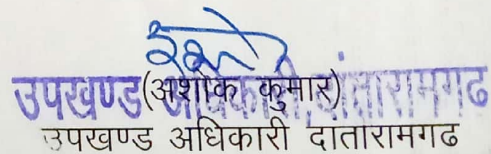 उपखण्ड अधिकारी, दांतारामगढ
(अशोक कुमार)
उपखण्ड अधिकारी दातारामगढ